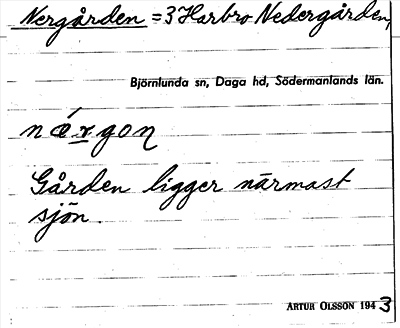 Nergården = 3 Harbro Nedergården,
Björnlunda sn, Daga hd, Södermanlands län.
nǽrgon
Gården ligger närmast
sjön.
ARTUR OLSSON 1943